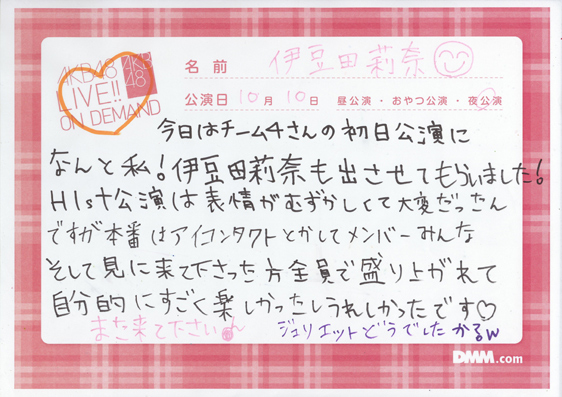 AKB48
LIVE!!
ON DEMAND
AKB
48
名前 伊豆田莉奈
公演日 10月10日 昼公演・おやつ公演・夜公演
今日はチーム4さんの初日公演に
なんと私!伊豆田莉奈も出させてもらいました!
H1st公演は表情がむずかしくて大変だったん
ですが本番はアイコンタクトとかしてメンバーみんな
そして見に来て下さった方全員で盛り上がれて
自分的にすごく楽しかったしうれしかったです♡
また来て下さい
ジュリエットどうでしたかw
DMM.com